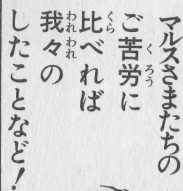 マルスさまたちの
ご苦労に
比べれば
我々の
したことなど！